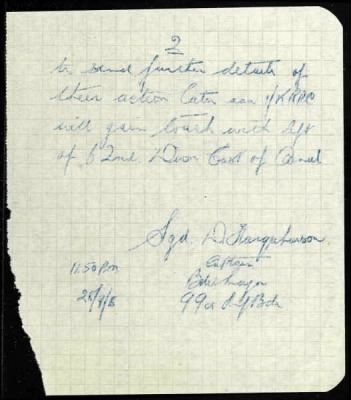 2
to send further details of
their action later aaa 1/KRRC
will gain touch with left
of 62nd Divn East of Canal
Sgd. D. Farquharson
Captain
11.50 pm Bde Major
99th Inf Bde